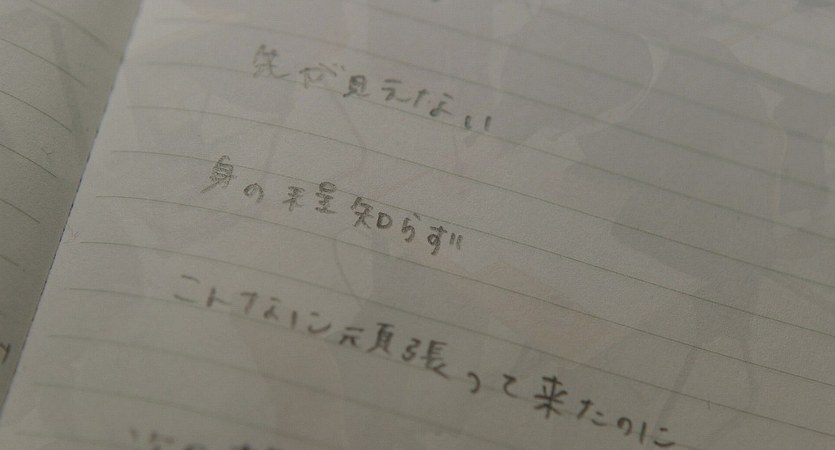 先が見えない
身の程知らず
こんなに頑張って来たのに